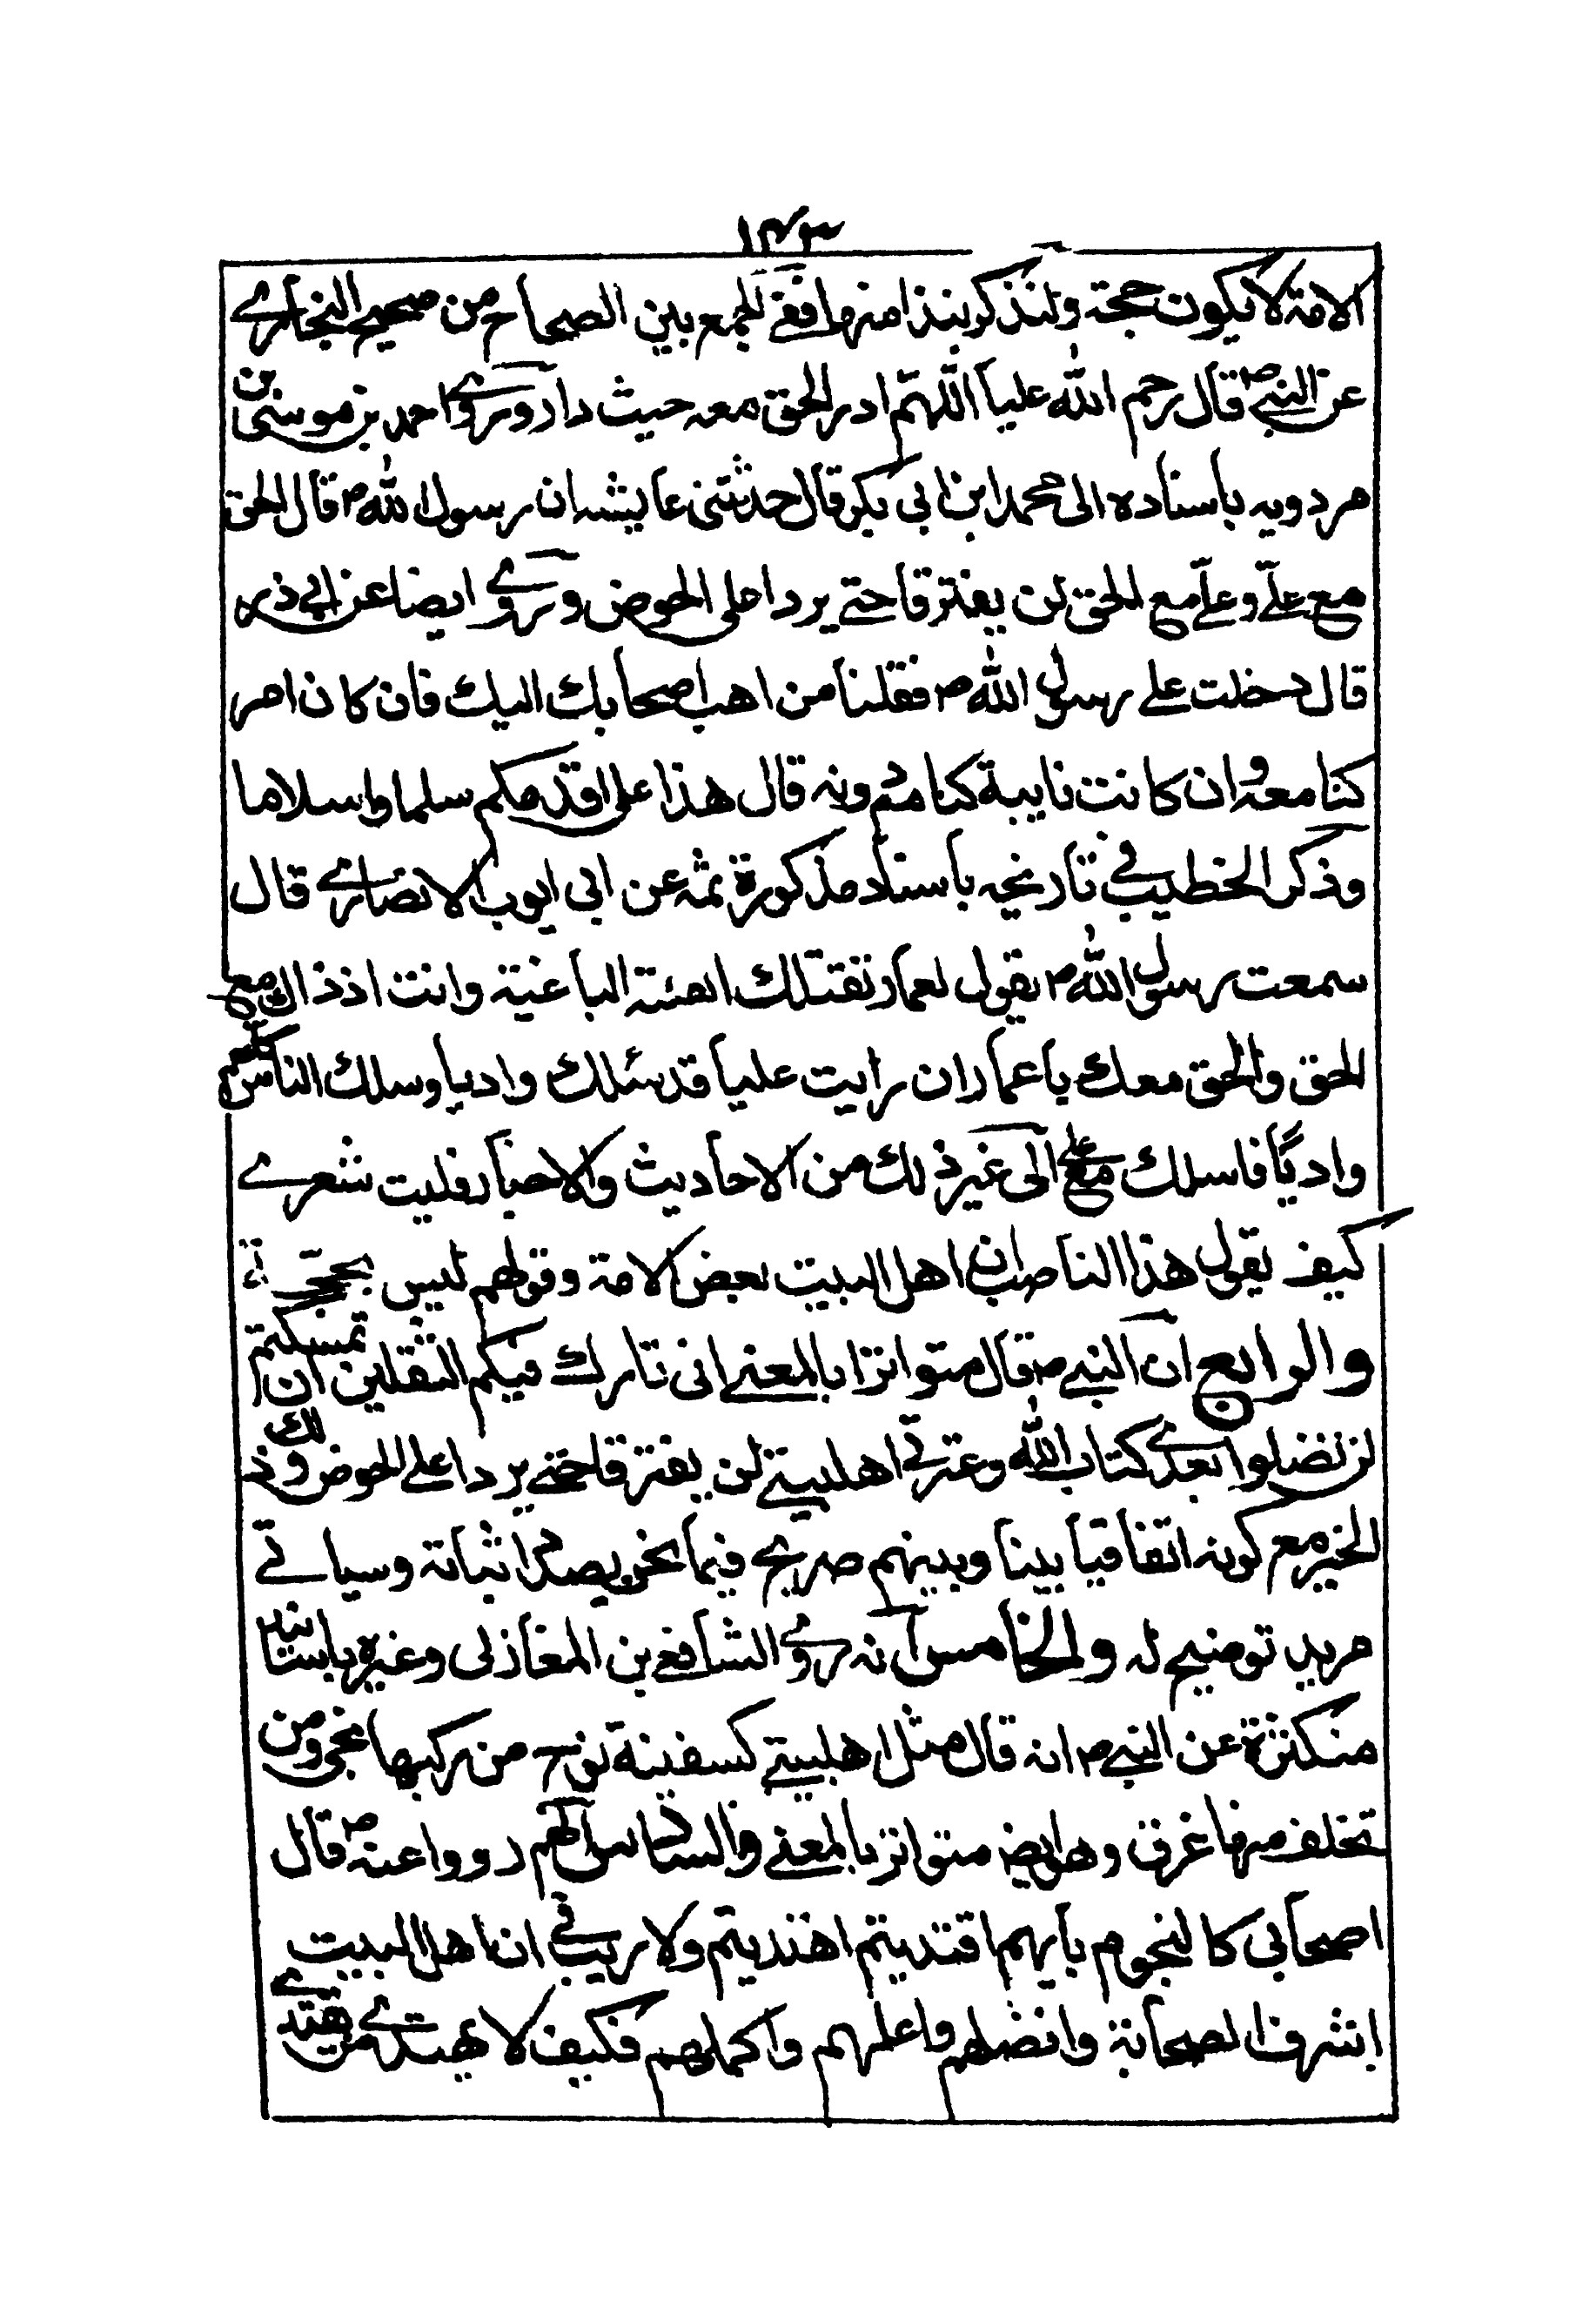 ١٤٣
الامة لا يكون حجة ولنذكر بنذا منها ففي الجمع بين الصحاح من صحيح البخاري
عن النبي ص قال رحم الله عليا اللهم ادر الحق معه حيث دار وروي احمد بن موسى بن
مردويه باسناده الى محمد ابن ابي بكر قال حدثتني عايشه ان رسول الله ص قال الحق
مع علي وعلي مع الحق لن يفترقا حتي يردا علي الحوض وروي ايضا عن ابي ذر
قال دخلت علي رسول الله ص فقلنا من احب اصحابك اليك فان كان امر
كنا معه وان كانت نايبة كنا من دونه قال هذا علي اقدمكم سلما واسلاما
وذكر الخطيب في تاريخه باسناد مذكورة ثمه عن ابي ايوب الانصاري قال
سمعت رسول الله ص يقول لعمار تقتلك الفئة الباغية وانت اذ ذاك مع
الحق والحق معك يا عمار ان رايت عليا قد سلك واديا وسلك الناس كلهم
واديًا فاسلك مع علي الى غير ذلك من الاحاديث والاخبار فليت شعري
كيف يقول هذا الناصب ان اهل البيت بعض الامة وقولهم ليس بحجة
والرابع ان النبي ص قال متواترا بالمعني اني تارك فيكم الثقلين ان تمسكتم
لن تضلوا بعدي كتاب الله وعترتي اهلبيتي لن يفترقا حتي يردا علي الحوض وذلك
الخبر مع كونه اتفاقيا بيننا وبينهم صريح فيما نحن بصدد اثباته وسياتي
مزيد توضيح له والخامس انه روي الشافعي بن المغازلي وغيره باسانيد
متكثرة عن النبي ص انه قال مثل اهلبيتي كسفينة نوح من ركبها نجي ومن
تخلف منها غرق وهو ايض متواتر بالمعني والسادس انهم رووا عنه ص قال
اصحابي كالنجوم بايهم اقتديتم اهتديتم ولا ريب في ان اهل البيت
اشرف الصحابة وافضلهم واعلمهم واكملهم فكيف لا يهتدي من يقتدي